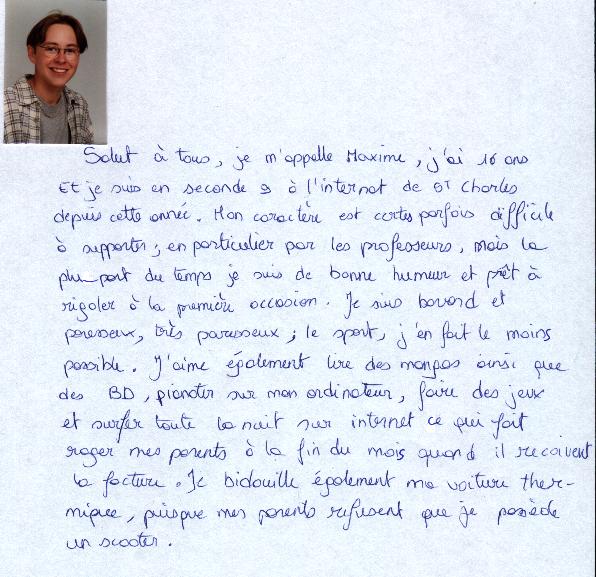 Salut à tous, je m'appelle Maxime, j'ai 16 ans
Et je suis en seconde 9 à l'internet de ST Charles
depuis cette année. Mon caractère est certes parfois difficile
à supporter, en particulier par les professeurs, mais la
plupart du temps je suis de bonne humeur et prêt à
rigoler à la première occasion. Je suis bavard et
paresseux, très paresseux ; le sport, j'en fait le moins
possible. J'aime également lire des mangas ainsi que
des BD, pianoter sur mon ordinateur, faire des jeux
et surfer toute la nuit sur internet ce qui fait
rager mes parents à la fin du mois quand il recoivent
la facture. Je bidouille également ma voiture ther-
mique, puisque mes parents refusent que je possède
un scooter.